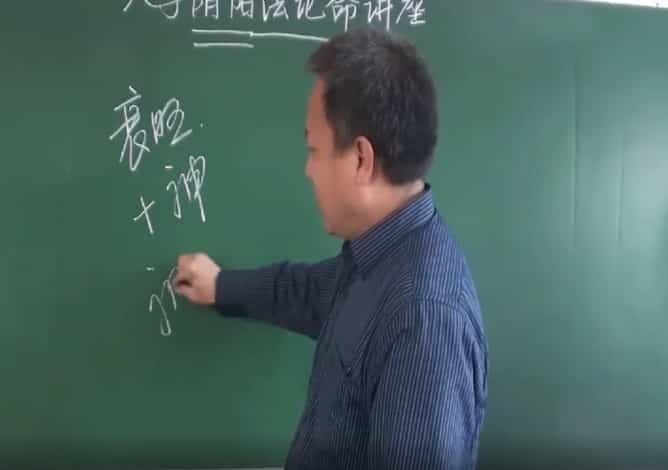 八字阴阳法论命讲座
衰旺.
十神